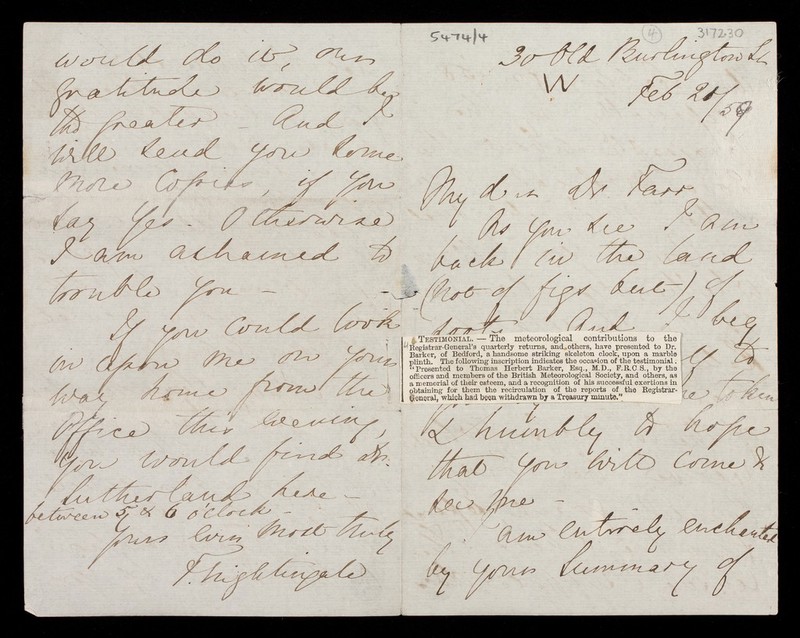 5474/4
4
317230
30 Old Burlington St
W
Feb 20/59
My dear Dr Farr
As you see I am
back in the land
(not of figs but) of
And I beg
TESTIMONIAL. — The meteorological contributions to the
Registrar-General's quarterly returns, and others, have presented to Dr
Barker, of Bedford, a handsome striking skeleton clock, upon a marble
plinth. The following inscription indicates the occasion of the testimonial.
"Presented to Thomas Herbert Barker, Esq., M.D., F.R.C.S., by the
officers and members of the British Meteorological Society, and others, as
a memorial of their esteem, and a recognition of his successful exertions in
obtaining for them the recirculation of the reports of the Registrar-
General, which had been withdrawn by a Treasury minute."
to
token
& humbly to hope
that you will come &
see me -
I am entirely enchanted
by your Summary of
would do it, our
gratitude would be
the greater - And I
will send you some
more Copies, if you
say Yes. Otherwise
I am ashamed to
trouble you -
If you could look
in upon me on your
way home from the
Office this evening,
you would find Dr.
Sutherland here -
between 5 & 6 o'clock -
Yours ever most truly
F. Nightingale